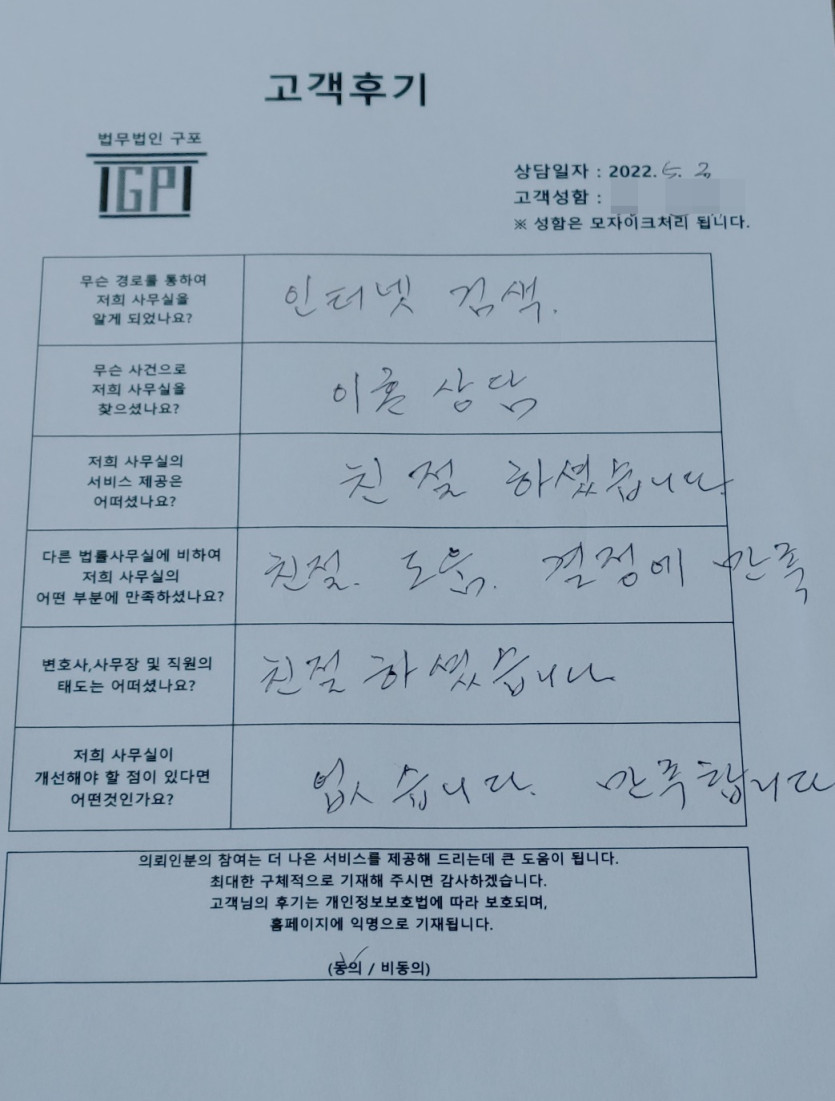 고객후기
법무법인 구포
IGPI
상담일자 : 2022. 5. 2,
고객성함 :
※ 성함은 모자이크처리 됩니다.
무슨 경로를 통하여
저희 사무실을
알게 되었나요?
인터넷 검색.
무슨 사건으로
저희 사무실을
찾으셨나요?
이혼 상담
저희 사무실의
서비스 제공은
어떠셨나요?
친절 하셨습니다
다른 법률사무실에 비하여
저희 사무실의
어떤 부분에 만족하셨나요?
친절. 도움. 결정에 만족
변호사,사무장 및 직원의
태도는 어떠셨나요?
친절 하셨습니다
저희 사무실이
개선해야 할 점이 있다면
어떤것인가요?
없습니다. 만족합니다
의뢰인분의 참여는 더 나은 서비스를 제공해 드리는데 큰 도움이 됩니다.
최대한 구체적으로 기재해 주시면 감사하겠습니다.
고객님의 후기는 개인정보보호법에 따라 보호되며,
홈페이지에 익명으로 기재됩니다.
(동의 / 비동의)